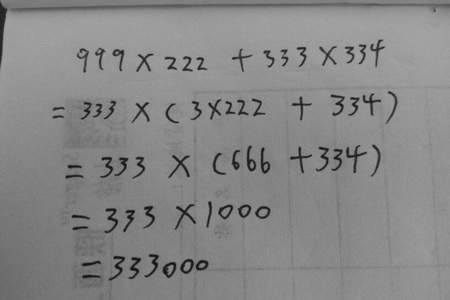 999×222 + 333×334
= 333 × (3×222 + 334)
= 333 × (666 + 334)
= 333 × 1000
= 333000